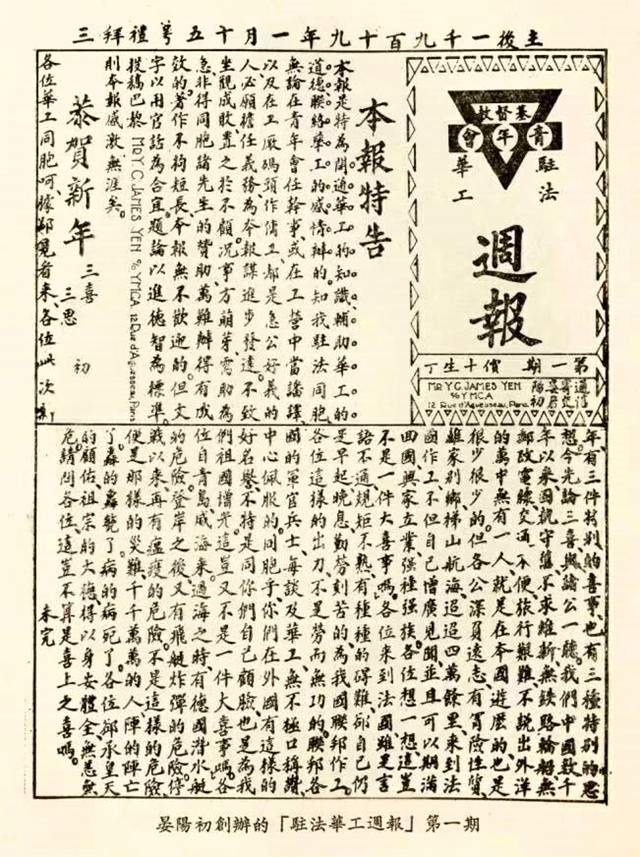 主後一千九百十九年一月十五号禮拜三
基督教
青年會
駐法
華工
週報
第一期 價十生丁
通信寄交晏君陽初
MR Y.C. JAMES YEN
% Y.M.C.A.
12 Rue d'Aguesseau, Paris
本報特告
本報是特為開通華工的知識輔助華工的
道德聯絡華工的感情辦的。知我駐法同胞
無論在青年會任幹事或在工營中當譯
以及在工廠碼頭作傭工都是急公好義的
人必願擔任義務為本報謀進步發達。不致
坐觀成敗置之於不顧。况事方萌芽需助為
急非得同胞諸先生的贊助萬難辦得有成
效的。著作不拘短長本報無不歡迎的。但文
字以用官話為合宜題論以進德智為標準。
投稿巴黎 MR Y.C. JAMES YEN % YMCA 12 Rue d'Aguesseau, Paris
則本報感激無涯矣。
恭賀新年 三喜 三思 初
各位華工同胞呵、據鄙見看來、各位此次新
年、有三件特别的喜事也有三種特别的思
想。今先論三喜與諸公一聽。我們中國數千
年以來因執守舊不求維新、無鉄路輪船無
郵政電線、交通不便旅行艱難。不説出外洋
的萬中無有一人、就是在本國遊歷的、也是
很少很少的。但各公深負遠志有冒險性質、
離家别鄉梯山航海迢迢四萬餘里來到法
國作工不但自己增廣見聞並且可以期滿
回國興家立業强種强族。各位想一想這豈
不是一件大喜事嗎。各位來到法國雖是言
語不通規矩不熟有種種的碍難、郤自己仍
是早起晚息勤勞刻苦的為我國聯邦作工。
各位這樣的出力不是勞而無功的。聯邦各
國的軍官兵士每談及華工無不極口稱讚
中心佩服的。同胞乎你們在外國有這樣的
好名譽不特是同你們自己顧臉也是為我
們祖國增光。這豈又不是一件大喜事嗎。各
位自青島威海來。過海之時有德國潛水艇
的危險。登岸之後又有飛艇炸彈的危險。停
戰以來再有瘟疫的危險。不是這樣的危險
便是那樣的災難。千千萬萬的人陣的陣亡
了。的斃了。病的病死了。各位郤承皇天
的顧佑祖宗的大德得以身安體全無恙無
危。請問各位這豈不算是喜上之喜嗎。
未完
晏陽初創辦的「駐法華工週報」第一期